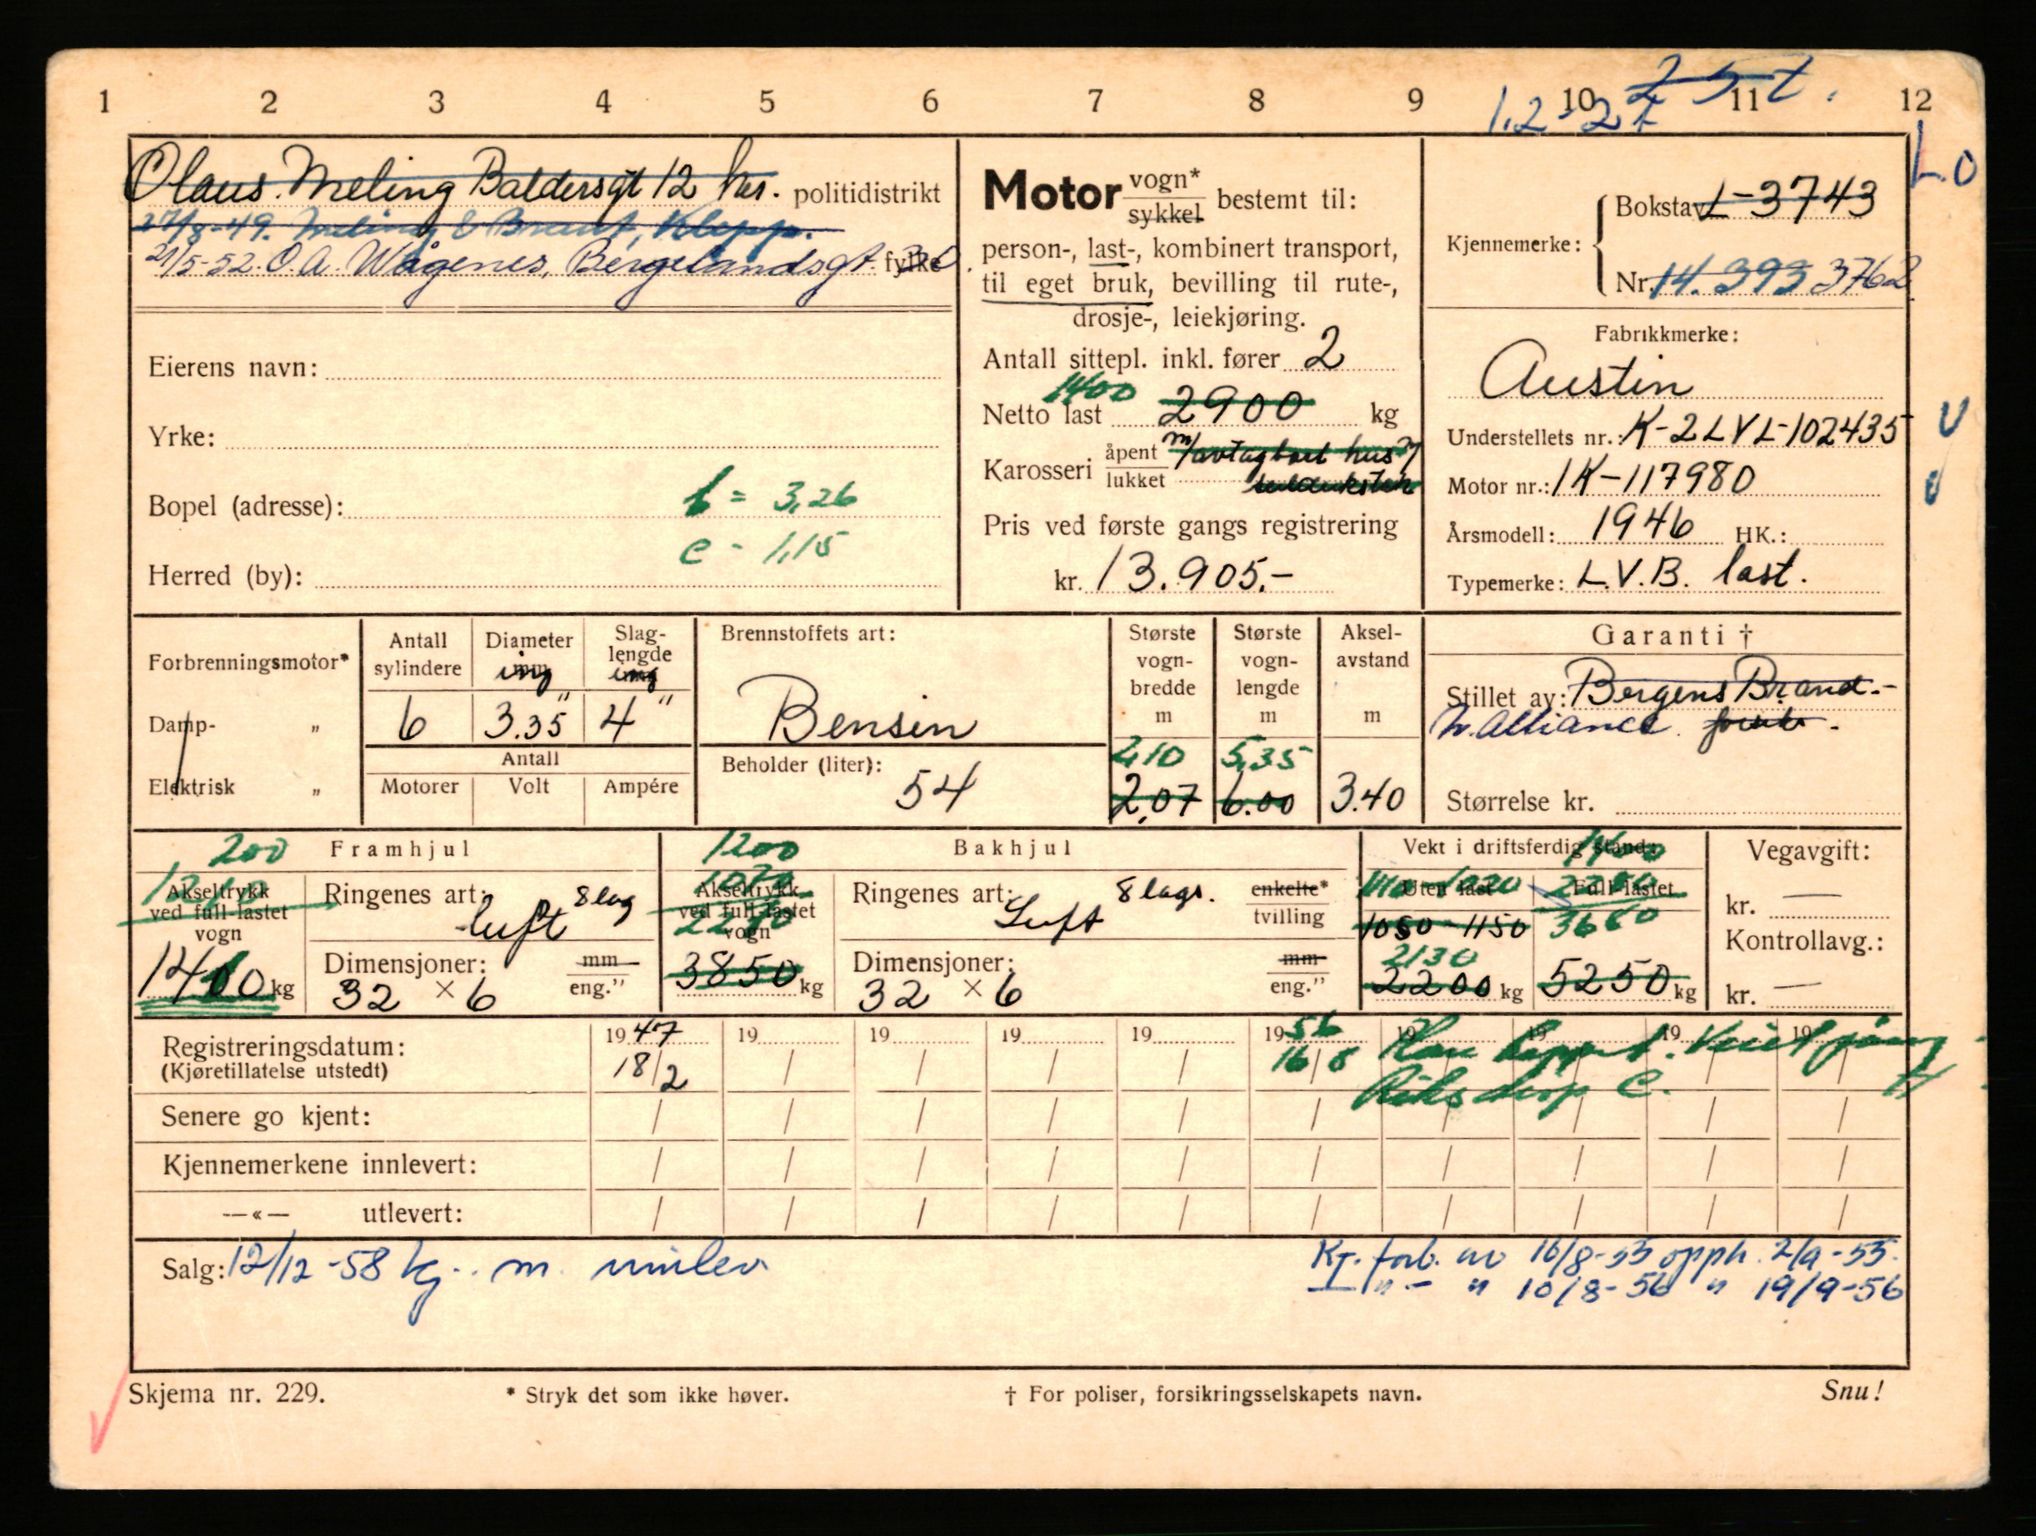 1 2 3 4 5 6 7 8 9 10 11 12
2 5 t.
1.2 - 2 t
L.o
Olaus Meling Baldersgt 12 her. politidistrikt
27/8-49. Meling & Braut, Klepp.
21/5-52. O. A. Wågenes, Bergelandsgt. 30. fylke
Eierens navn:
Yrke:
Bopel (adresse): b = 3,26
e - 1,15
Herred (by):
Motor vogn* sykkel bestemt til:
person-, last-, kombinert transport,
til eget bruk, bevilling til rute-,
drosje-, leiekjøring.
Antall sittepl. inkl. fører 2
1400
Netto last 2900 kg
Karosseri åpent lukket m/avtagbart hus
Pris ved første gangs registrering
kr. 13.905.-
Kjennemerke: Bokstav L-3743
Nr. 14.393 3762
Fabrikkmerke:
Austin
Understellets nr.: K-2LVL-102435
Motor nr.: 1K-117980
Årsmodell: 1946 HK.:
Typemerke: L.V.B. last.
Forbrenningsmotor*
Damp- „
Elektrisk „
Antall sylindere
6
Diameter mm ing
3.35"
Slaglengde ing
4"
Antall
Motorer Volt Ampére
Brennstoffets art:
Bensin
Beholder (liter): 54
Største vogn-bredde m
2,10
2,07
Største vogn-lengde m
5,35
6.00
Aksel-avstand m
3.40
Garanti †
Stillet av: Bergens Brand.-
N. Alliance.
Størrelse kr.
Framhjul
200
Akseltrykk ved full-lastet vogn
1400 kg
Ringenes art: luft 8 lag
Dimensjoner: mm eng."
32 × 6
Bakhjul
1200
Akseltrykk ved full-lastet vogn
3850 kg
Ringenes art: Luft 8 lags. enkelte* tvilling
Dimensjoner: mm eng."
32 × 6
Vekt i driftsferdig stand:
Uten last
1050 1150
2130
2200 kg
Full-lastet
3680
5250 kg
Vegavgift:
kr. —
Kontrollavg.:
kr. —
Registreringsdatum: 1947 19 19 19 19 1956 19 19 19 19
(Kjøretillatelse utstedt) 18/2 16/8
Senere go kjent:
Kjennemerkene innlevert:
—«— utlevert:
Salg: 12/12-58 kj. m. innlev
Kj. forb. av 16/8-55 opph. 2/9-55.
" - " 10/8-56 " 19/9-56
Skjema nr. 229. * Stryk det som ikke høver. † For poliser, forsikringsselskapets navn. Snu!